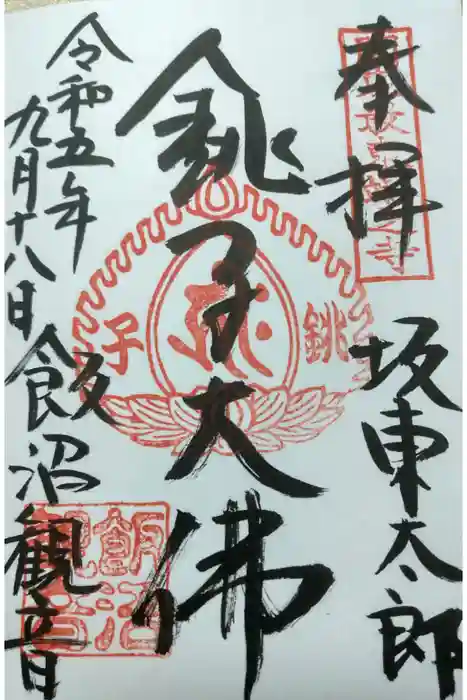 奉拝
坂東太郎
銚子大佛
令和五年
九月十八日
飯沼観音
銚
子
飯沼
観音